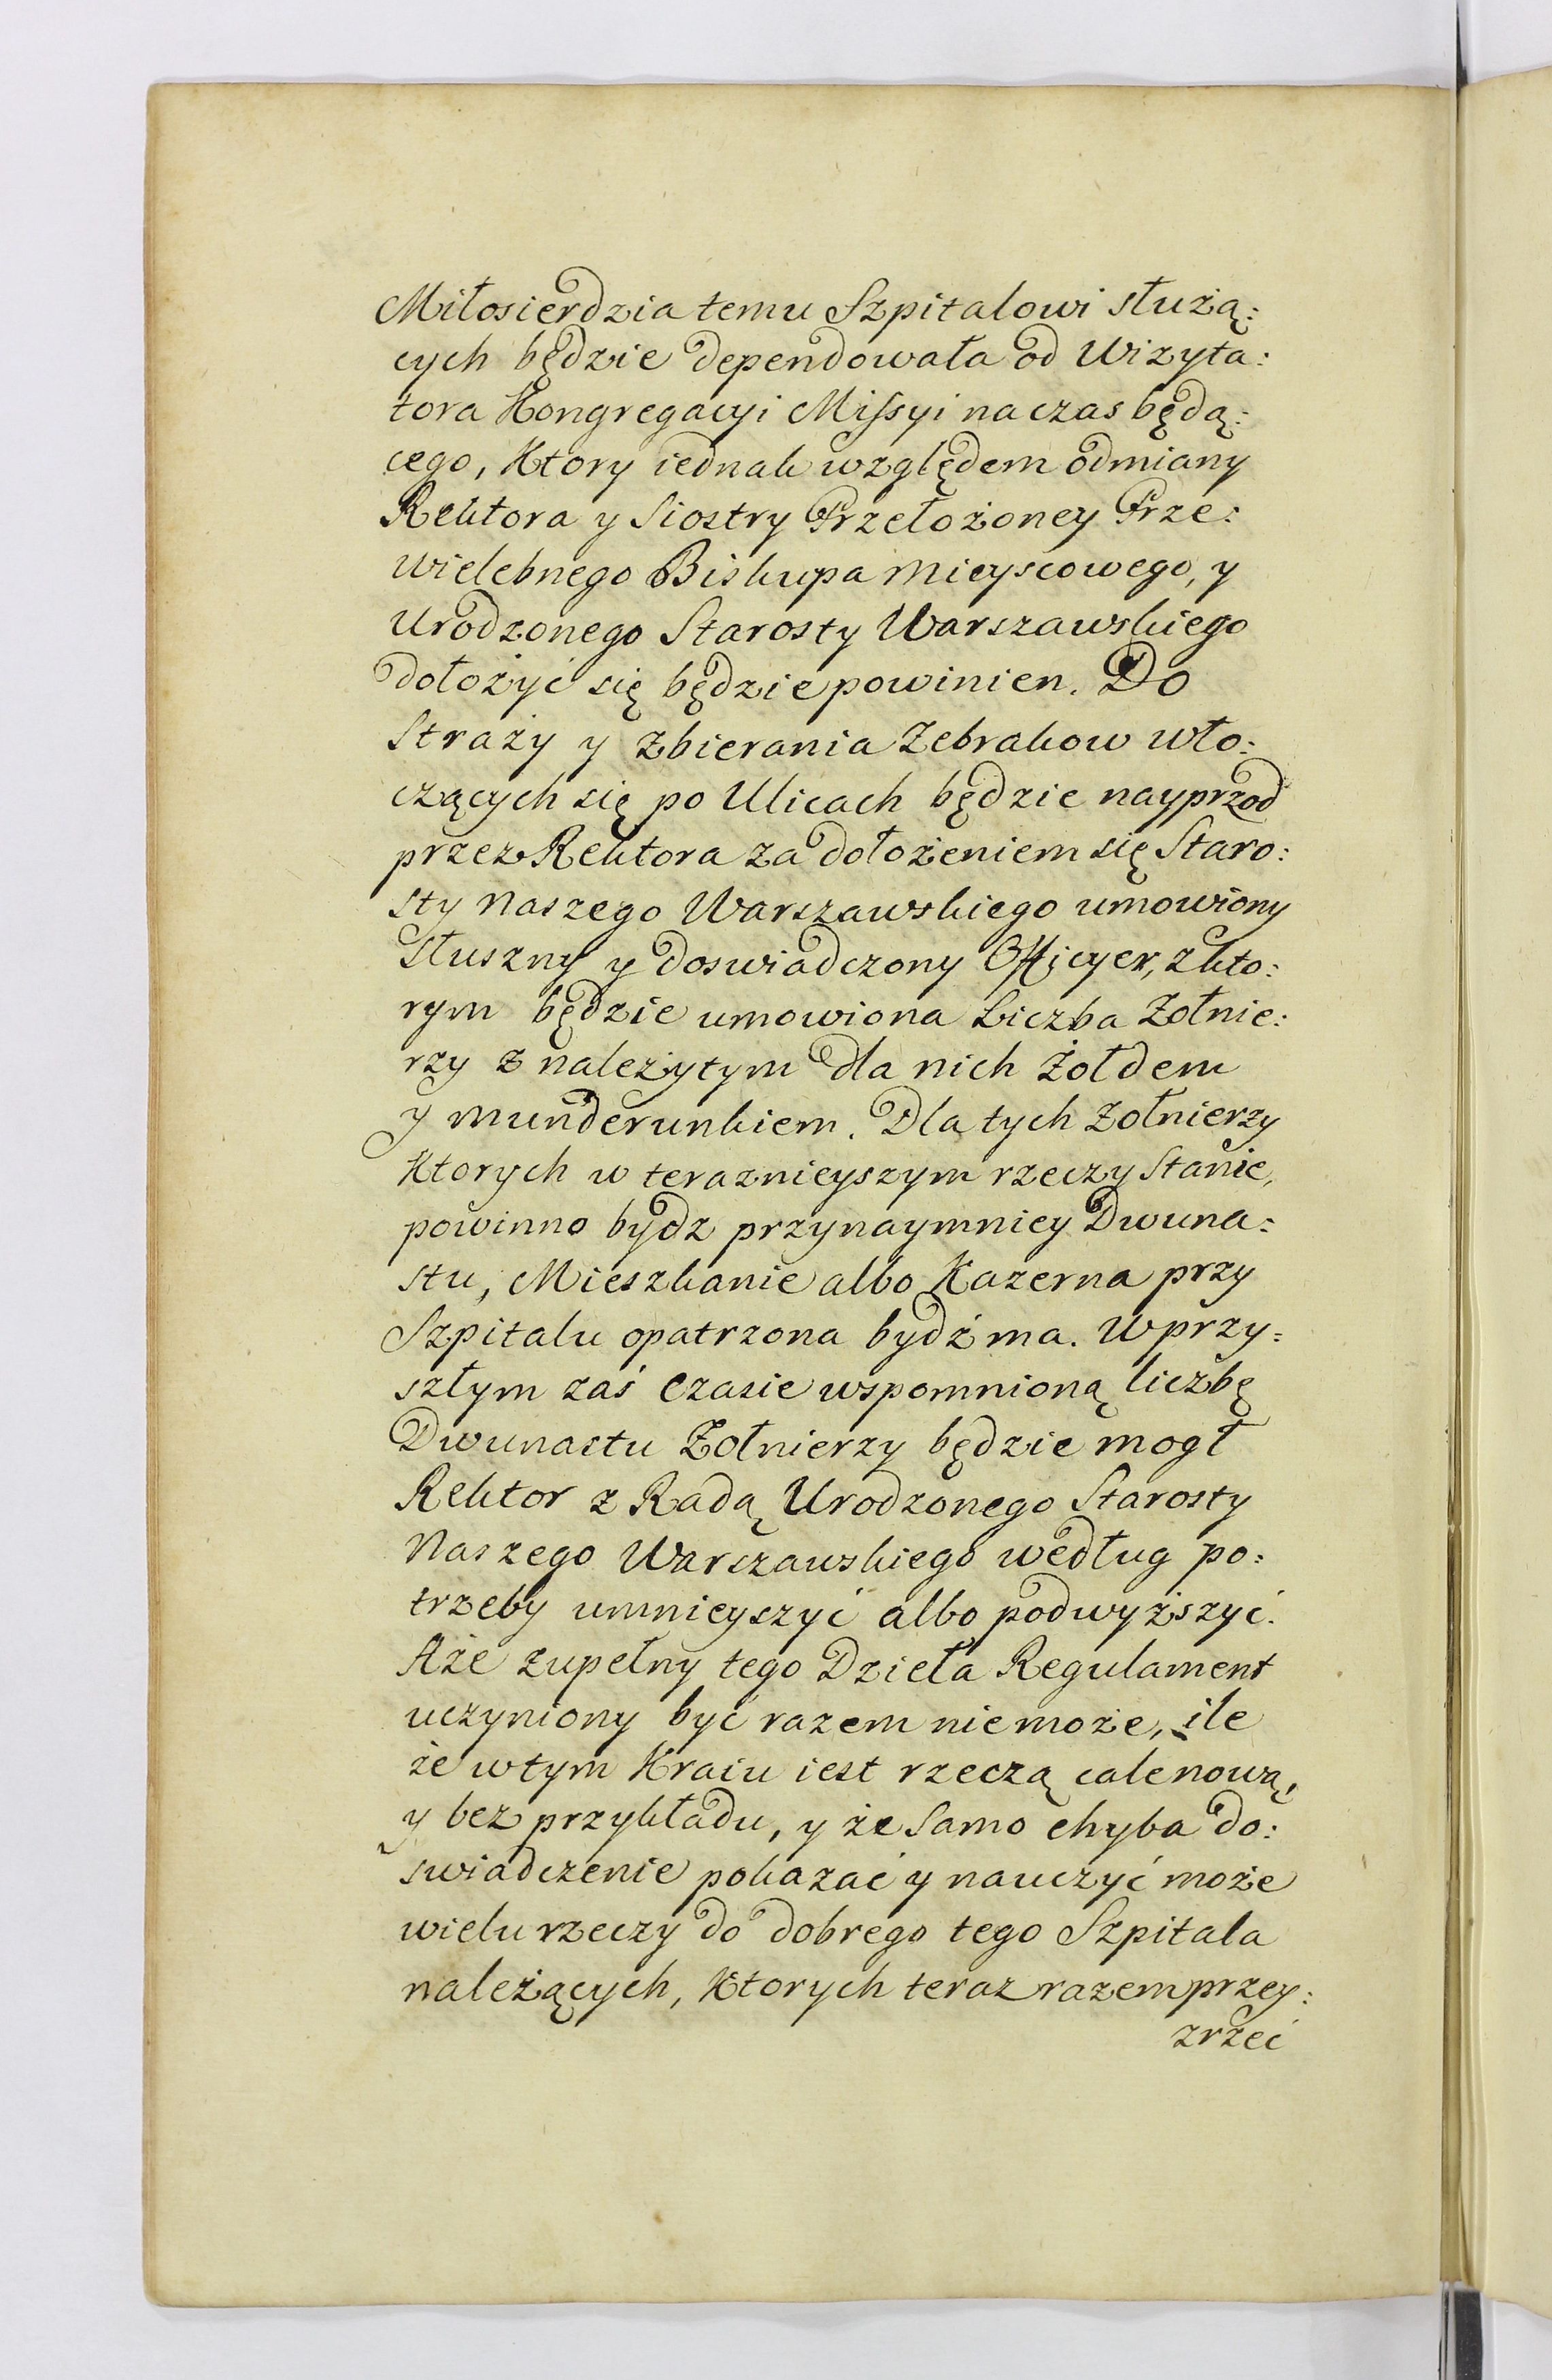 Miłosierdzia temu Szpitalowi służą:
cych będzie dependowała od Wizyta:
tora Kongregacyi Missyi na czas będą:
cego, Ktory iednak względem odmiany
Rektora y Siostry Przełożoney Prze:
wielebnego Biskupa mieyscowego, y
Urodzonego Starosty Warszawskiego
dołożyć się będzie powinien. Do
Straży y Zbierania Zebrakow wło:
czących się po Ulicach będzie nayprzod
przez Rektora za dołożeniem się Staro:
sty Naszego Warszawskiego umowiony
Słuszny y doswiadczony Officyer, z kto:
rym będzie umowiona Liczba Zołnie:
rzy z należytym dla nich Żołdem
y munderunkiem. Dla tych Zołnierzy
Ktorych w teraznieyszym rzeczy Stanie,
powinno bydz przynaymniey Dwuna:
stu, Mieszkanie albo Kazerna przy
Szpitalu opatrzona bydź ma. W przy:
szłym zaś Czasie wspomnioną liczbę
Dwunastu Żołnierzy będzie mogł
Rektor z Radą Urodzonego Starosty
Naszego Warszawskiego według po:
trzeby umnieyszyć albo podwyższyć.
Aże zupełny tego Dzieła Regulament
uczyniony być razem nie może, ile
że w tym Kraiu iest rzeczą cale nową,
y bez przykładu, y że Samo chyba do:
swiadczenie pokazać y nauczyć może
wielu rzeczy do dobrego tego Szpitala
należących, Ktorych teraz razem przey:
zrzeć